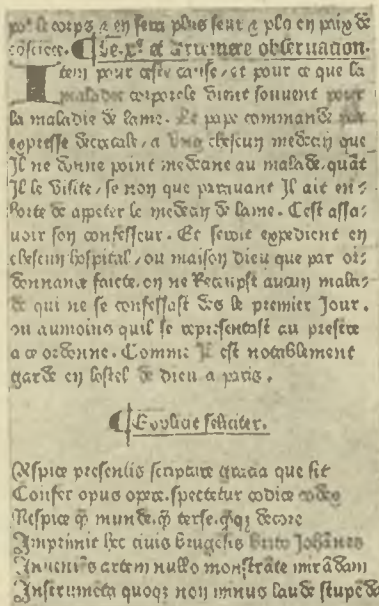 po² le corps a en sera plus seur a plo en paix de
cõsciẽce. ¶ Le .x². et derreniere obseruation.
Item pour ceste cause / et pour ce que la
maladie corporele vient souuent pour
la maladie de lame. Le pape commande par
expresse decretale, a vng chescun medecin que
Il ne donne point medecine au malade, quãt
Il le visite / se non que parauant Il ait en-
horte de appeler le medecin de lame. Cest assa-
uoir son confesseur. Et seroit expedient en
chescun hospital / ou maison dieu que par or-
donnance faicte. on ne Receupst aucun mala-
de qui ne se confessast des le premier Jour.
ou aumoins quil se representast au prestre
a ce ordonne. Comme Il est notablement
garde en lostel de dieu a paris.
¶ Expliciat feliciter.
Aspice presentis scripture gracia que sit
Confer opus opere. spectetur codice codex
Respice q̃ munde. q̃ terse. q̃q3 decore
Imprimit hec ciuis brugensis brito Johãnes
Inueniẽs artem nullo monstrãte mirãdam
Instrumẽta quoq3 non minus laude stupẽda